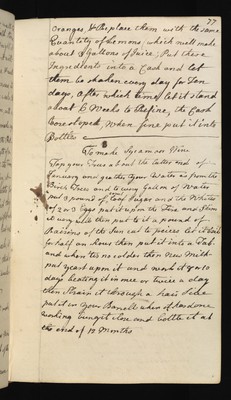 77
Oranges, & replace them with the same
Quantity of Lemons, which will make
about 5 Gallons of Juice, Put these
Ingredients into a Cask and let
them be shaken every day for Ten
days, after which time let it stand
about 6 Weeks to Refine, the Cask
close stopt, When fine put it into
Bottles
To make Sycamore Wine
Tap your Trees about the latter end of
January and gather your Water as from the
Birch Trees and to every Gallon of Water
put 3 pound of Loaf Sugar and the Whites
of 2 or 3 Eggs put it upon the Fire and skim
it very well then put to it a pound of
Raisins of the Sun cut to pieces let it boil
for half an hour then put it into a Tub
and when tis no colder then New Milk
put yeast upon it and work it 8 or 10
days beating it in once or twice a day
then strain it through a hair Sieve
put it in your Barrell when it has done
working bung it close and bottle it at
the end of 12 Months